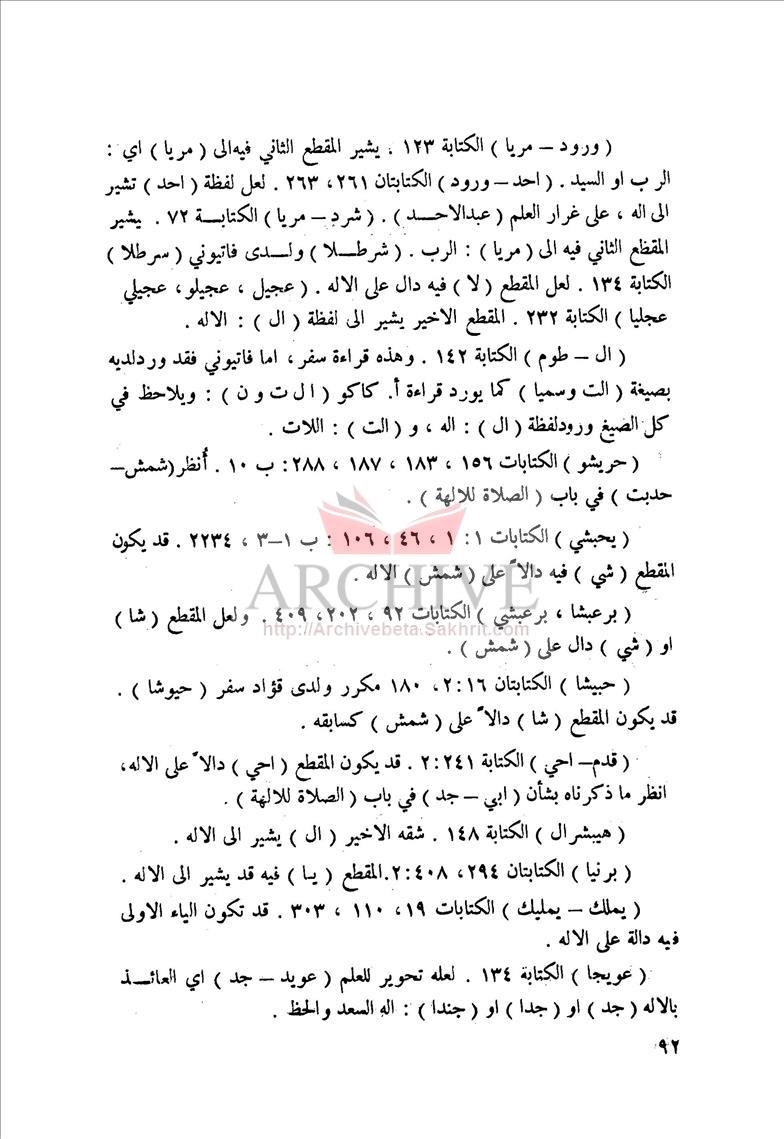 ( ورود – مريا ) الكتابة ١٢٣ . يشير المقطع الثاني فيه الى ( مريا ) اي :
الرب او السيد . ( احد – ورود ) الكتابتان ٢٦١ ، ٢٦٣ . لعل لفظة ( احد ) تشير
الى اله ، على غرار العلم ( عبدالاحـــد ) . ( شرد – مريا ) الكتابـــة ٧٢ . يشير
المقظع الثاني فيه الى ( مريا ) : الرب . ( شرطـــلا ) ولـــدى فاتيوني ( سرطلا )
الكتابة ١٣٤ . لعل المقطع ( لا ) فيه دال على الاله . ( عجيل ، عجيلو ، عجيلي
عجليا ) الكتابة ٢٣٢ . المقطع الاخير يشير الى لفظة ( ال ) : الاله .
( ال – طوم ) الكتابة ١٤٢ . وهذه قراءة سفر ، اما فاتيوني فقد وردلديه
بصيغة ( الت وسميا ) كما يورد قراءة أ. كاكو ( ا ل ت و ن ) : ويلاحظ في
كل الصيغ ورودلفظة ( ال ) : اله ، و ( الت ) : اللات .
( حريشو ) الكتابات ١٥٦ ، ١٨٣ ، ١٨٧ ، ٢٨٨ : ب ١٠ . أُنظر (شمش–
حدبت ) في باب ( الصلاة للالهة ) .
( يحبشي ) الكتابات ١ : ١ ، ٤٦ ، ١٠٦ : ب ١–٣ ، ٢٢٣٤ . قد يكون
المقطع ( شي ) فيه دالاً على ( شمش ) الاله .
ARCHIVE
( برعيشا ، برعيشي ) الكتابات ٩٢ ، ٢٠٢ ، ٤٠٩ . ولعل المقطع ( شا )
http://Archivebeta.Sakhrit.com
او ( شي ) دال على ( شمش ) .
( حبيشا ) الكتابتان ١٦ : ٢ ، ١٨٠ مكرر ولدى قؤاد سفر ( حيوشا ) .
قد يكون المقطع ( شا ) دالاً على ( شمش ) كسابقه .
( قدم– احي ) الكتابة ٢٤١ : ٢ . قد يكون المقطع ( احي ) دالاً على الاله ،
انظر ما ذكرناه بشأن ( ابي – جد ) في باب ( الصلاة للالهة ) .
( هيبشرال ) الكتابة ١٤٨ . شقه الاخير ( ال ) يشير الى الاله .
( برنيا ) الكتابتان ٢٩٤ ، ٤٠٨ : ٢ .المقطع ( يـا ) فيه قد يشير الى الاله .
( يملك – يمليك ) الكتابات ١٩ ، ١١٠ ، ٣٠٣ . قد تكون الياء الاولى
فيه دالة على الاله .
( عويجا ) الكتابة ١٣٤ . لعله تحوير للعلم ( عويد – جد ) اي العائـــذ
بالاله ( جد ) او ( جدا ) او ( جندا ) : اله السعد والحظ .
٩٢